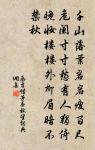 千山落葉岩岩瘦百尺
危闌寸寸愁有人獨倚
晚妝樓樓外柳眉暗不
禁秋